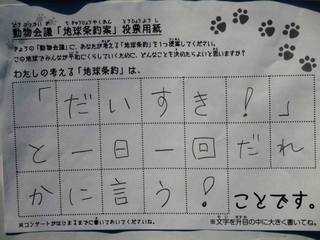 動物会議「地球条約案」投票用紙
きょうの「動物会議」に、あなたが考える「地球条約」を1つ提案してください。
この地球でみんなが平和にくらしていくために、どんなことを決めたらよいと思いますか?
わたしの考える「地球条約」は、
「だいすき!」
と一日一回だれ
かに言う!
ことです。
※コンサートがはじまるまでに書いておいてくださいね。
※文字を升目の中に大きく書いてね。